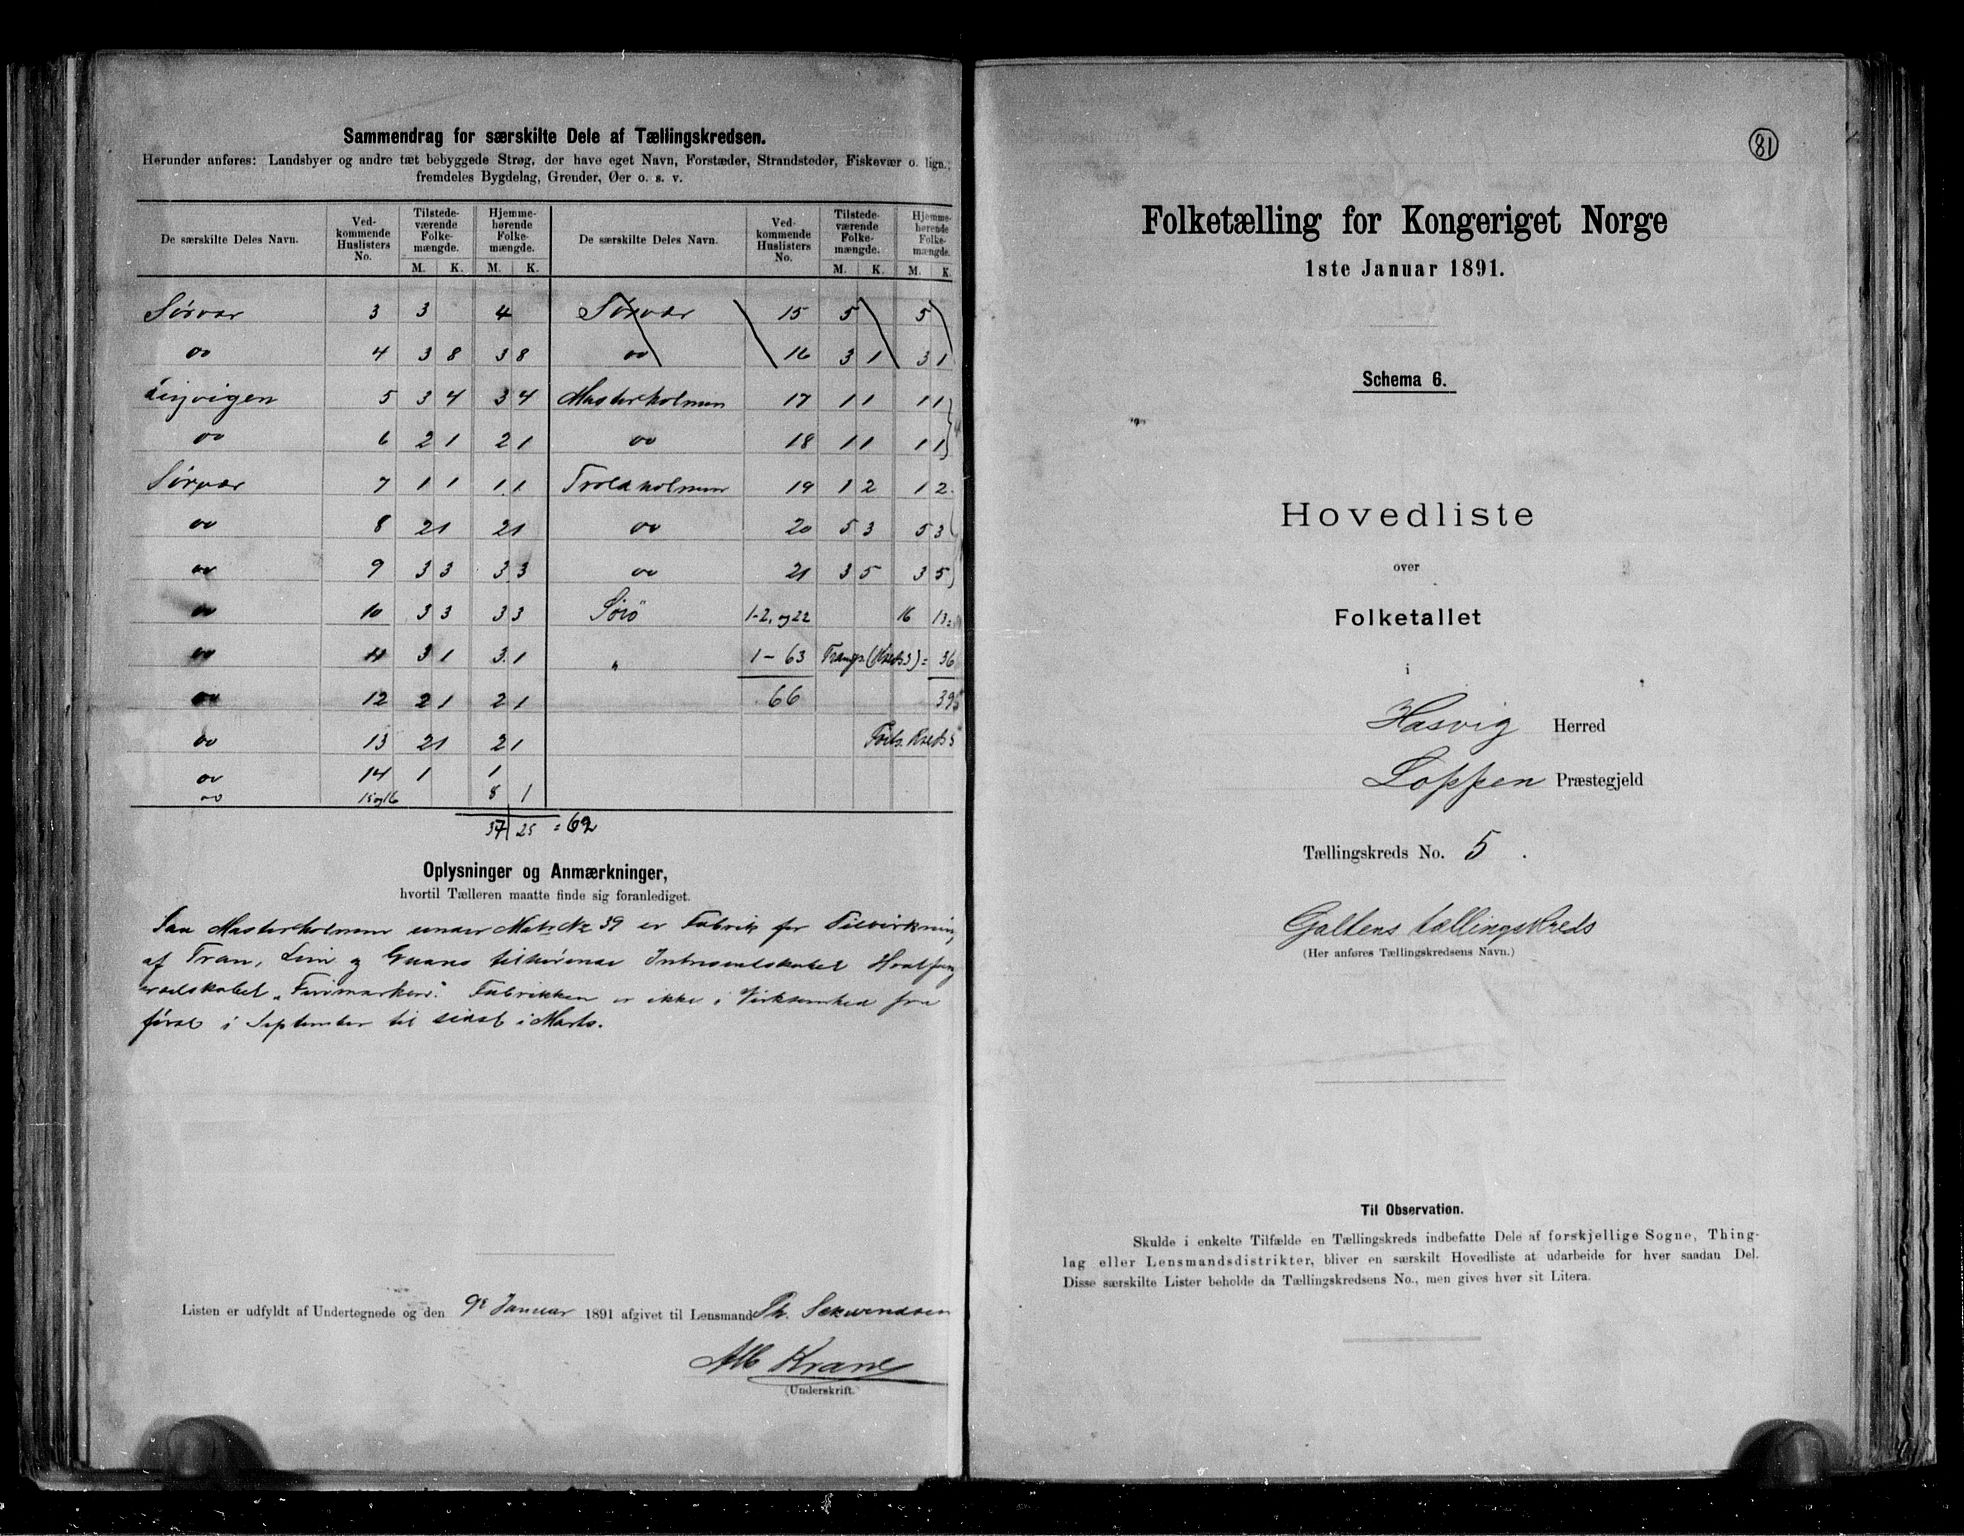 Sammendrag for særskilte Dele af Tællingskredsen.
Herunder anføres: Landsbyer og andre tæt bebyggede Strøg, der have eget Navn, Forstæder, Strandsteder, Fiskevær o. lign.,
fremdeles Bygdelag, Grender, Øer o. s. v.
De særskilte Deles Navn. Ved-kommende Huslisters No. Tilstede-værende Folke-mængde. Hjemme-hørende Folke-mængde. De særskilte Deles Navn. Ved-kommende Huslisters No. Tilstede-værende Folke-mængde. Hjemme-hørende Folke-mængde.
M. K. M. K. M. K. M. K.
Sørvær 3 3 4 Sørvær 15 5 5
do 4 3 8 3 8 do 16 3 1 3 1
5 3 4 3 4 Masterholmen 17 1 1 1 1
do 6 2 1 2 1 do 18 1 1 1 1
Sørvær 7 1 1 1 1 Troldholmen 19 1 2 1 2
do 8 2 1 2 1 do 20 5 3 5 3
do 9 3 3 3 3 do 21 3 5 3 5
do 10 3 3 3 3 Sørö 1-2, og 22 16 13
do 11 3 1 3 1 " 1-63 Transp. (Kreds 3) = 36
do 12 2 1 2 1 66 39
do 13 2 1 2 1 Forts. Kreds 5
do 14 1 1
do 15 og 16 8 1
37 25 = 62
Oplysninger og Anmærkninger,
hvortil Tælleren maatte finde sig foranlediget.
Paa Masterholmen under Matr No 39 er Fabrik for Tilvirkning
af Tran, Lim og Guano tilhørende Interessentskabet Hvalfang
erselskabet "Finmarken". Fabrikken er ikke i Virksomhed fra
først i September til sidst i Marts.
Listen er udfyldt af Undertegnede og den 9de Januar 1891 afgivet til Lensmand Th. Sekundsen
Alb Krane
(Underskrift.)
81
Folketælling for Kongeriget Norge
1ste Januar 1891.
Schema 6.
Hovedliste
over
Folketallet
i
Hasvig Herred
Loppen Præstegjeld
Tællingskreds No. 5.
Galtens tællingskreds
(Her anføres Tællingskredsens Navn.)
Til Observation.
Skulde i enkelte Tilfælde en Tællingskreds indbefatte Dele af forskjellige Sogne, Thing-
lag eller Lensmandsdistrikter, bliver en særskilt Hovedliste at udarbeide for hver saadan Del.
Disse særskilte Lister beholde da Tællingskredsens No., men gives hver sit Litera.